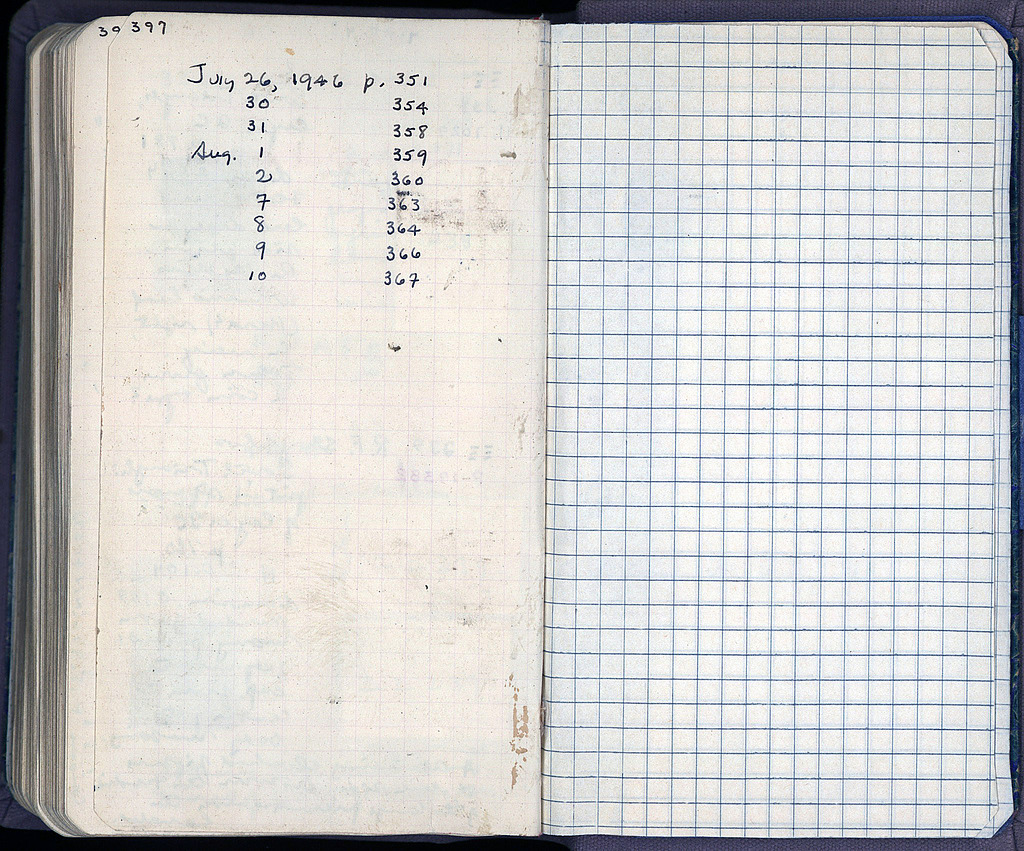 39 397
July 26, 1946 p. 351
30 354
31 358
Aug. 1 359
2 360
7 363
8 364
9 366
10 367